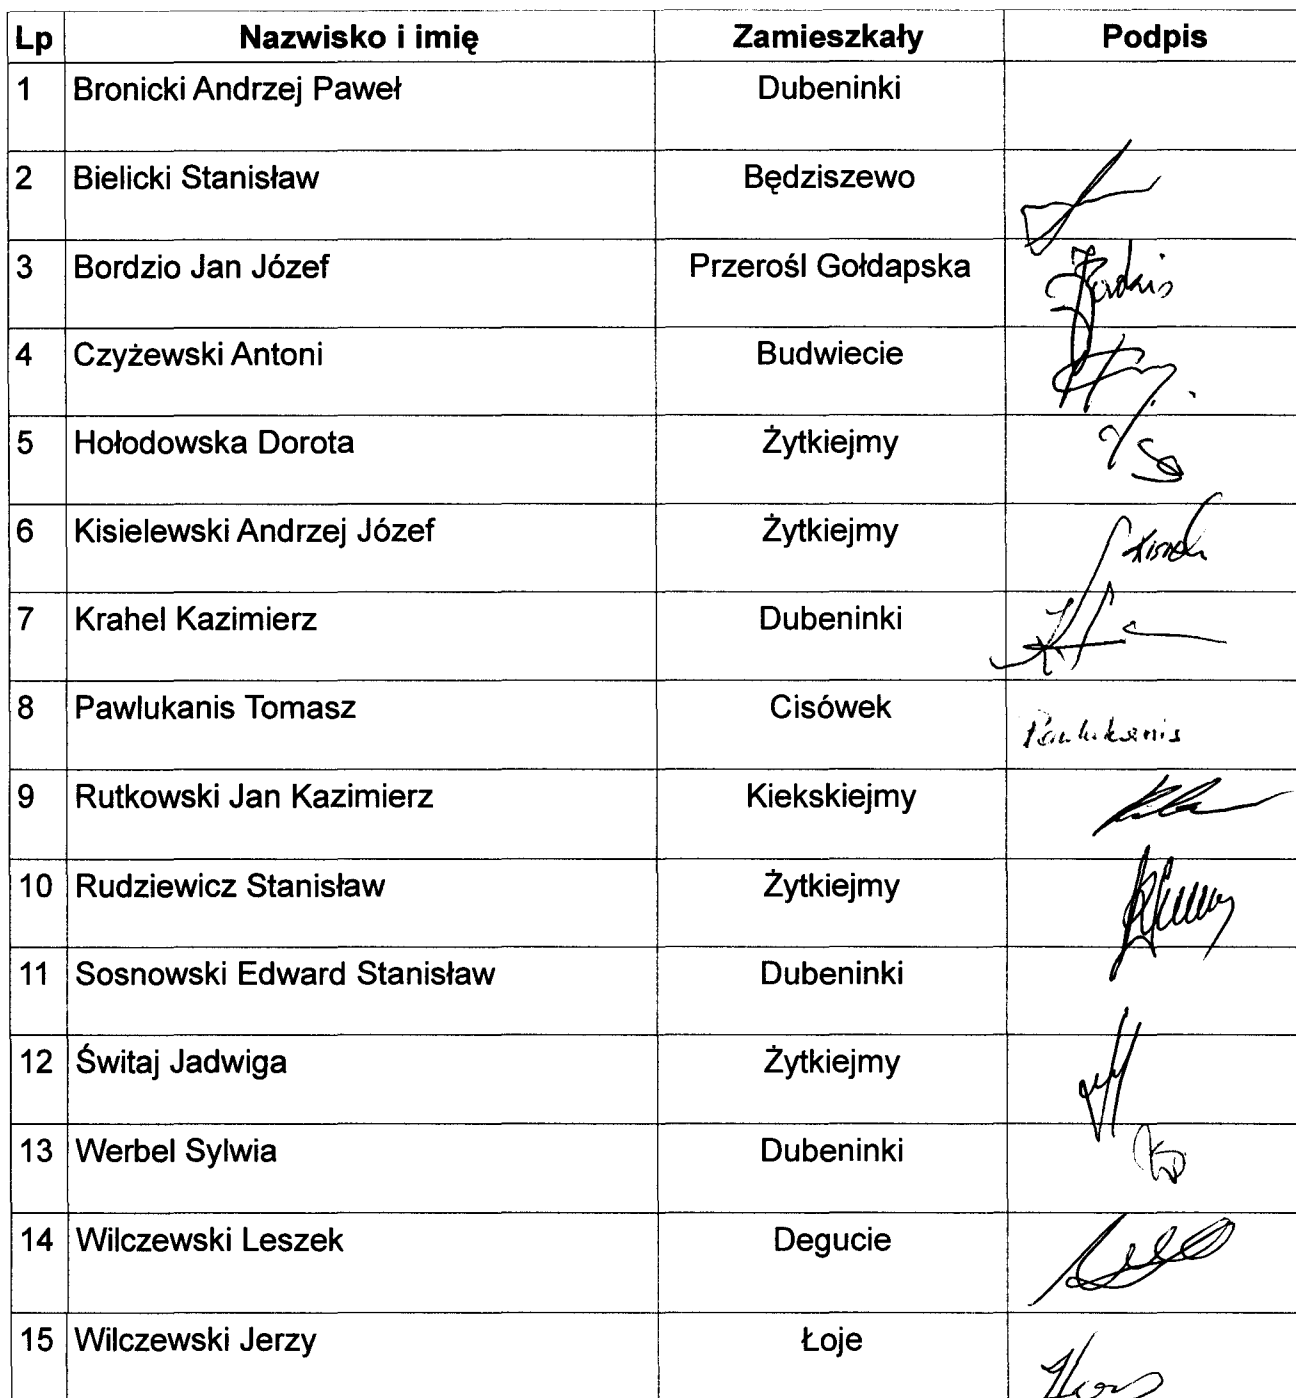 Lp Nazwisko i imię Zamieszkały Podpis
1 Bronicki Andrzej Paweł Dubeninki
2 Bielicki Stanisław Będziszewo
3 Bordzio Jan Józef Przerośl Gołdapska
4 Czyżewski Antoni Budwiecie
5 Hołodowska Dorota Żytkiejmy
6 Kisielewski Andrzej Józef Żytkiejmy
7 Krahel Kazimierz Dubeninki
8 Pawlukanis Tomasz Cisówek Pawlukanis
9 Rutkowski Jan Kazimierz Kiekskiejmy
10 Rudziewicz Stanisław Żytkiejmy
11 Sosnowski Edward Stanisław Dubeninki
12 Świtaj Jadwiga Żytkiejmy
13 Werbel Sylwia Dubeninki
14 Wilczewski Leszek Degucie
15 Wilczewski Jerzy Łoje